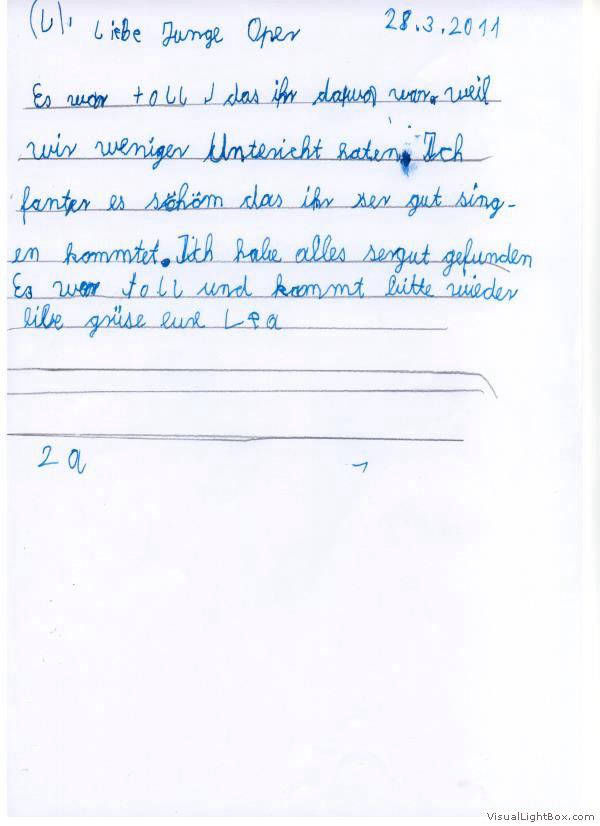 (L), Liebe Junge Oper 28.3.2011
Es war toll das ihr war. weil
wir weniger Untericht haten. Ich
es schöm das ihr ser gut sing-
en kommtet. Ich habe alles sergut gefunden
Es war toll und kommt bitte wieder
libe grüse eure Lea
2a
VisualLightBox.com